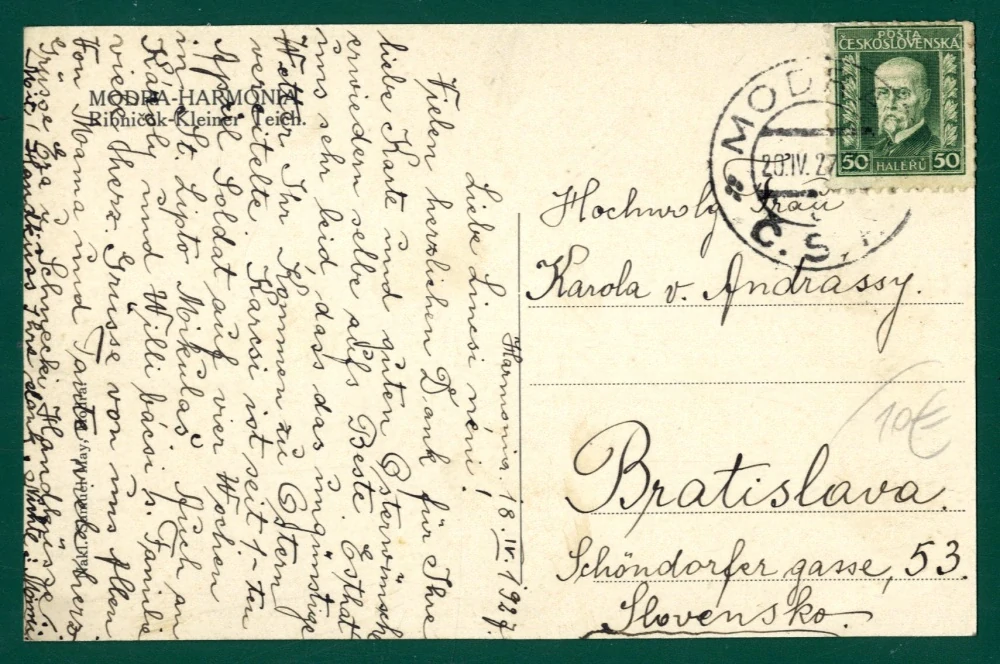 MODRA-HARMONIA
Ribničok-Kleiner Teich.
POŠTA
ČESKOSLOVENSKÁ
50 HALÉŘŮ 50
MODRA
20.IV.27
Č.S.R.
Hochwolg Frau
Karola v. Andrássy.
Bratislava.
Schöndorfer gasse, 53.
Slovensko.
10€
Harmonia, 18.IV.1927.
Liebe Lincsi néni!
Vielen herzlichen Dank für Ihre
liebe Karte und guten Osterwünsche
erwiedern selbe aufs Beste. Es that
uns sehr leid, dass das ungünstige
Wetter Ihr Kommen zu Ostern
vereitelte. Karcsi ist seit 1-ten
April Soldat auf vier Wochen
in St. Lipto Mikulas. Auch an
Karoly und Willi bácsi n. Familie
viele herz. Grüsse von uns Allen
Von Mama und Tante viele herz.
Grüsse
Handküsse